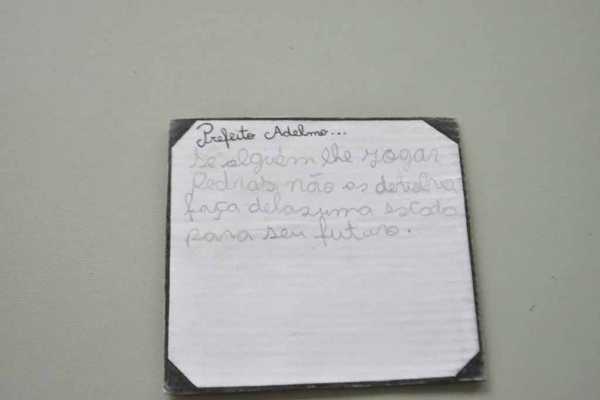 Prefeito Adelmo...
se alguém lhe jogar
Pedras, não as
faça delas uma escada
para seu futuro.